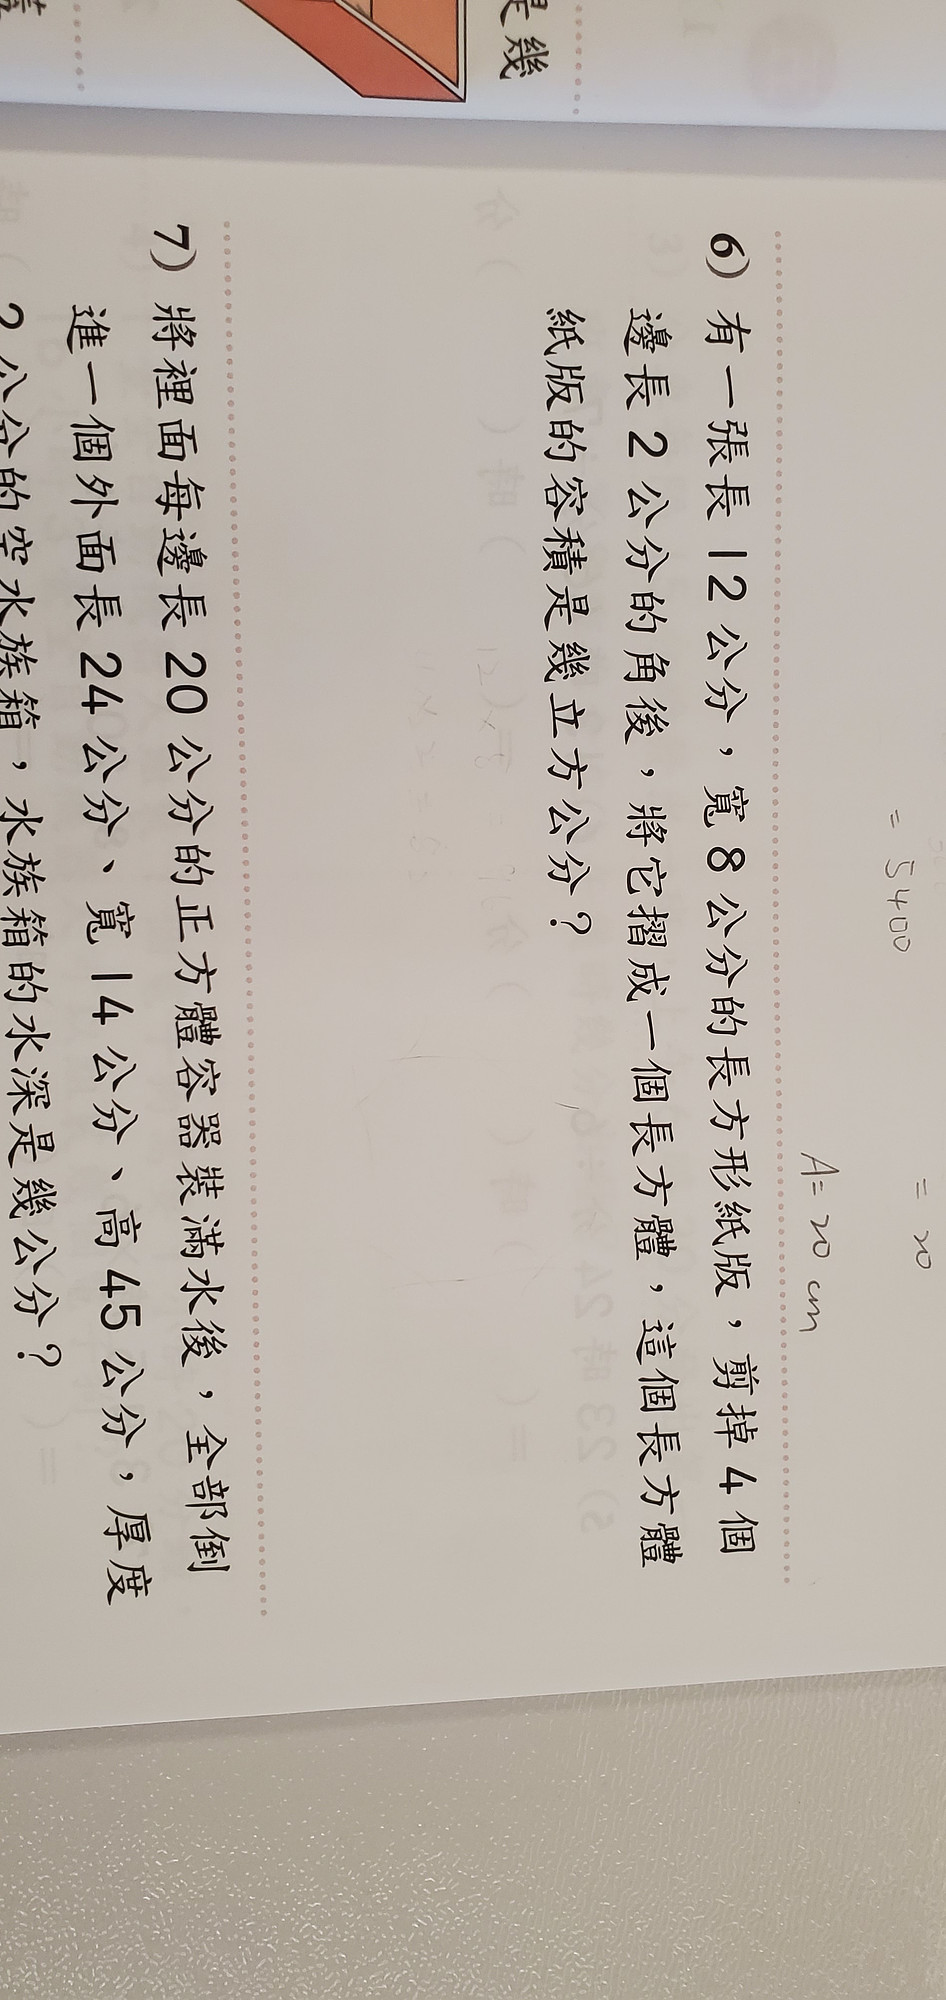 是幾
= 5400
= 20
A= 20 cm
6) 有一張長 12 公分，寬 8 公分的長方形紙版，剪掉 4 個
邊長 2 公分的角後，將它摺成一個長方體，這個長方體
紙版的容積是幾立方公分？
7) 將裡面每邊長 20 公分的正方體容器裝滿水後，全部倒
進一個外面長 24 公分、寬 14 公分、高 45 公分，厚度
2 公分的空水族箱，水族箱的水深是幾公分？